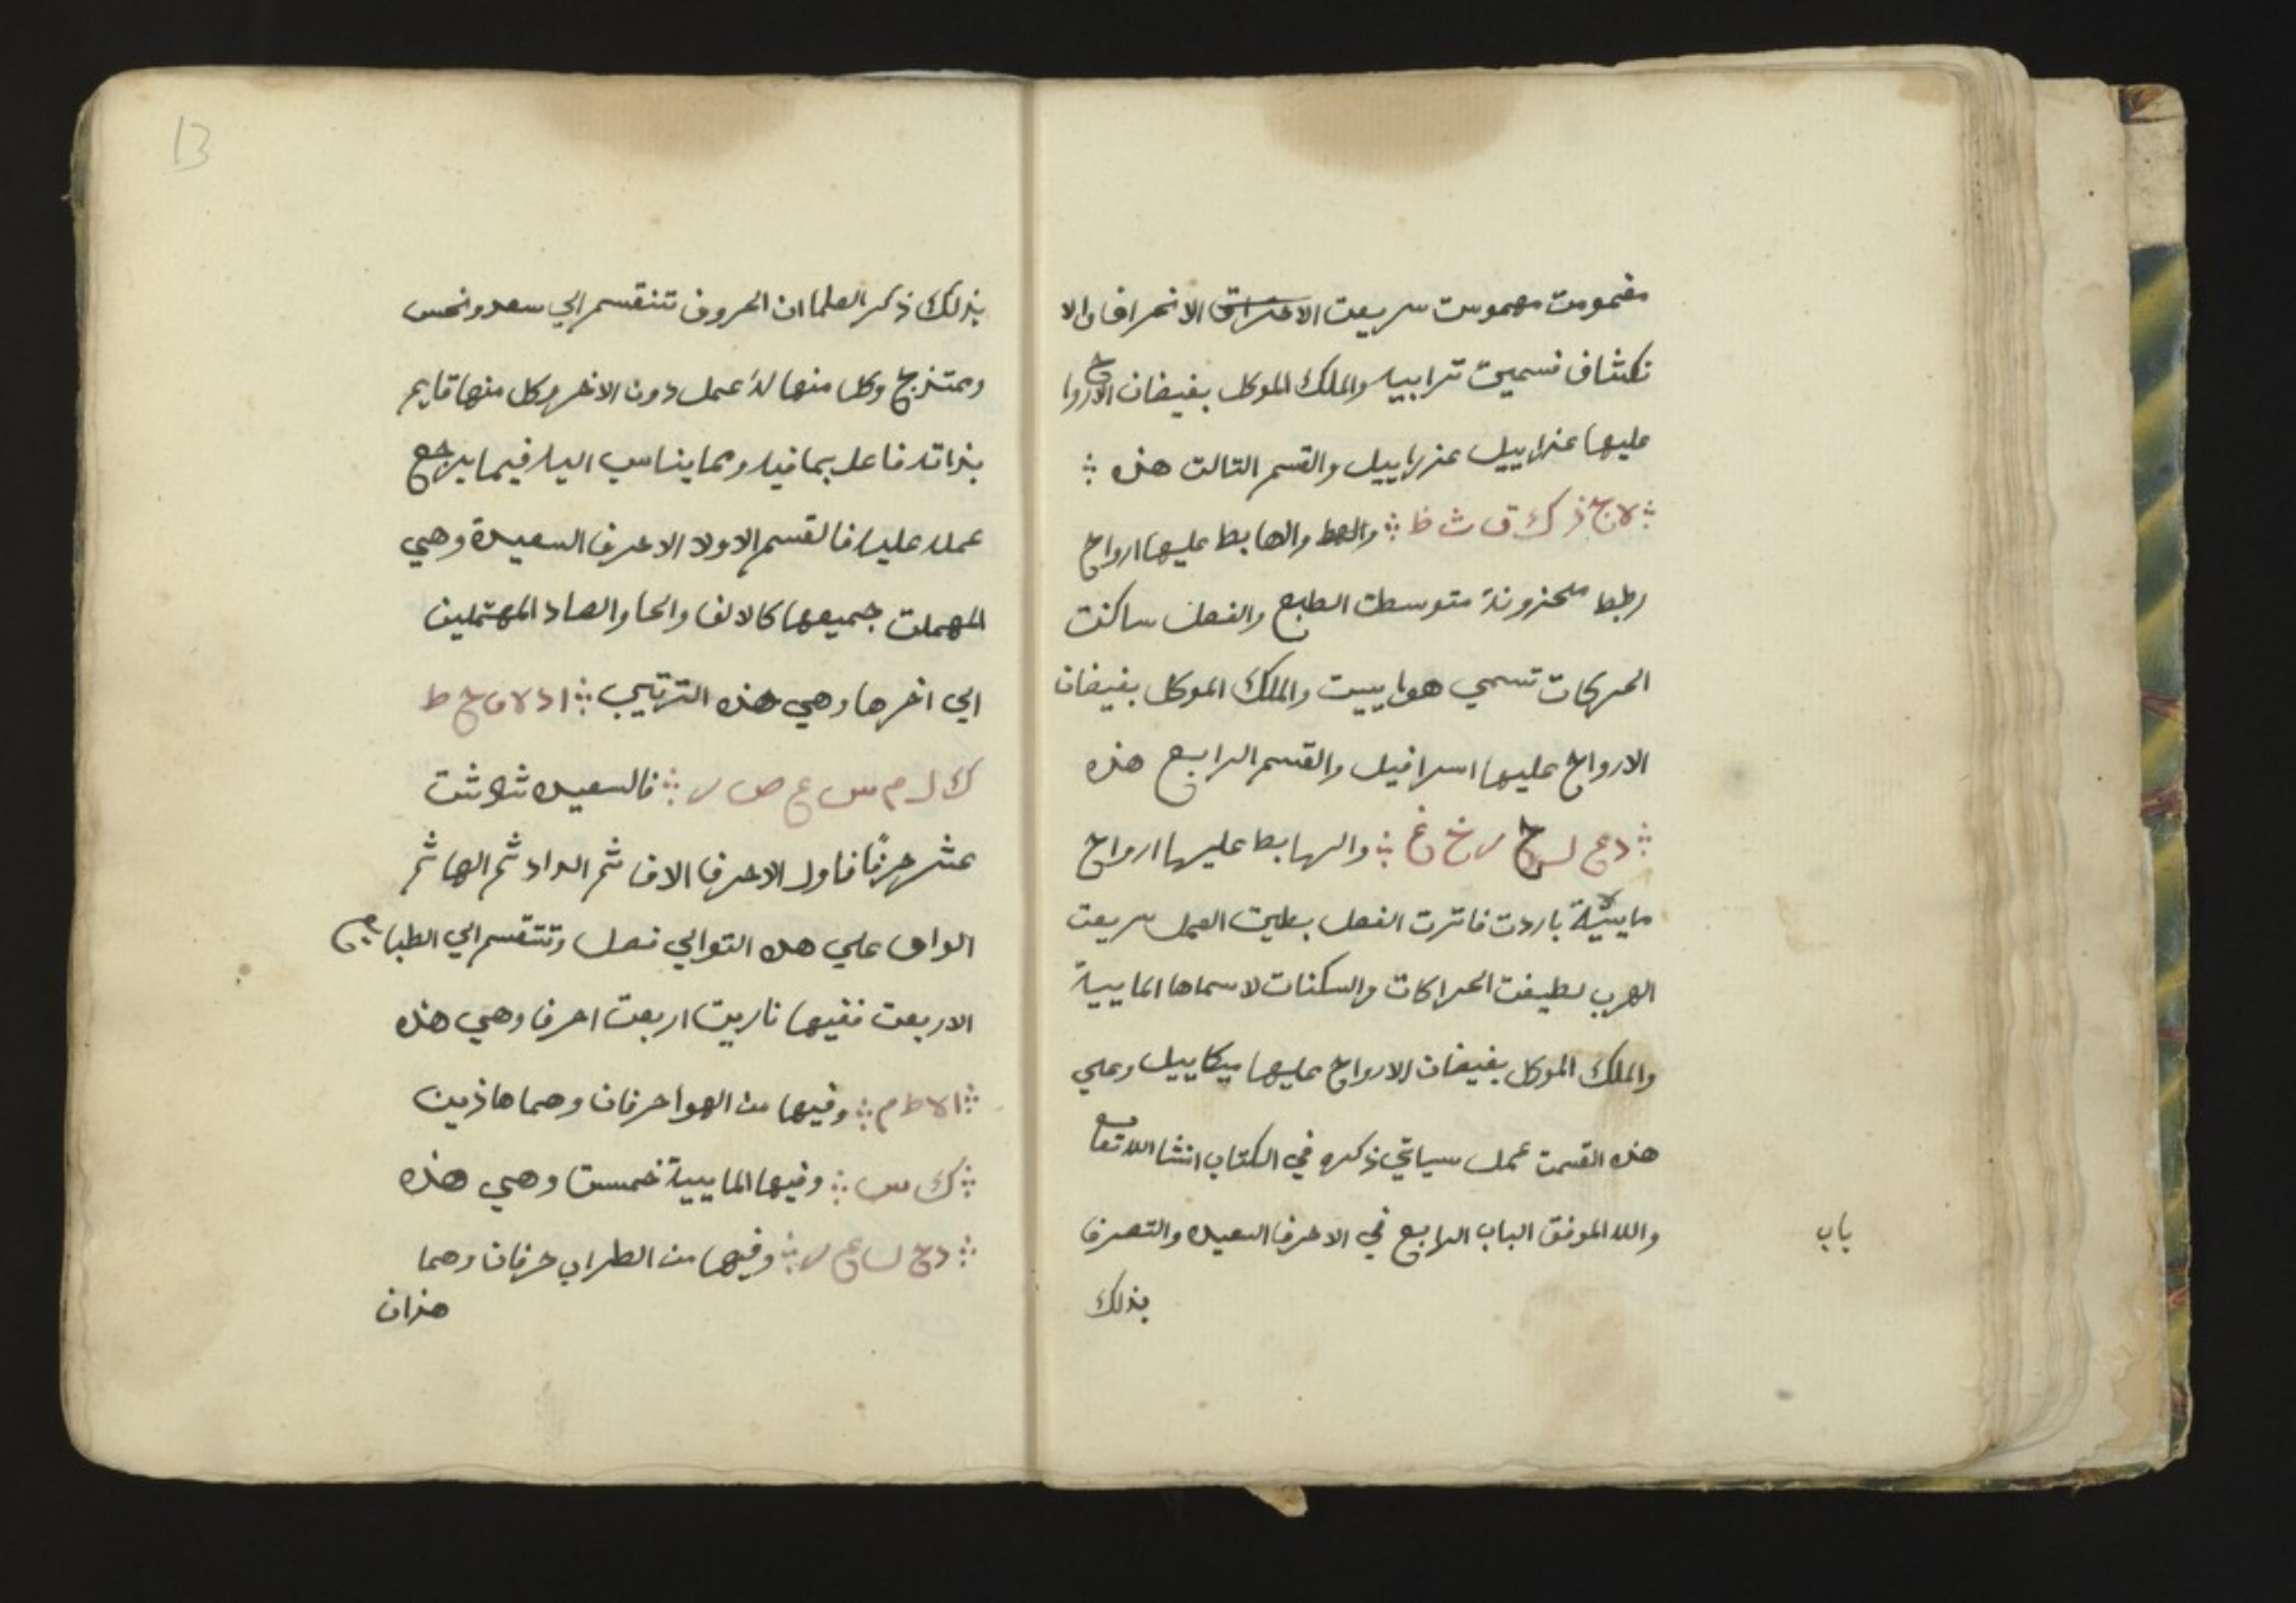 مغمومت مهموست سريعت الاحتراق الانحراف والا
نكشاف فسميت ترابيه والملك الموكل بفيضان الاروا
ح
عليها عزراييل عزراييل والقسم الثالت هذه
لا ج ز ك ق ث ظ والهط والهابط عليها ارواح
رطبط محزونة متوسطت الطبع والفعل ساكنت
الحركات تسمي هواييت والملك الموكل بفيضان
الارواح عليها اسرافيل والقسم الرابع هذه
د ع ل ح ر خ غ والهابط عليها ارواح
ماييية باردت فاترت الفعل بطيت العمل سريعت
الهرب لطيفت الحراكات والسكنات لاسماها الماييية
والملك الموكل بفيضان الارواح عليها ميكاييل وعلي
هذه القسمت عمل سياتي ذكره في الكتاب انشا الله تعا
والله الموفق الباب الرابع في الاحرف السعيده والتصرف
باب
بذلك
13
بذلك ذكر العلما ان الحروف تنقسم الي سعد ونحس
وممتزج وكل منها له عمل دون الاخر وكل منها قايم
بذاته فاعل بما فيه وبما يناسب اليه فيما يرجع
عمله عليه فالقسم الاول الاحرف السعيدة وهي
المهملت جميعها كالالف والحا والصاد المهتملين
الي اخرها وهي هذه الترتيب ا د لا و ح ط
ك ل م س ع ص ر فالسعيده ثلاثت
عشر حرفًا فاول الاحرف الاف ثم الداد ثم الها ثم
الواو علي هده التوالي فصل وتنقسم الي الطبايع
الاربعت ففيها ناريت اربعت احرف وهي هذه
ا لا ط م وفيها من الهوا حرفان وهما هاذين
ك س وفيها الماييية خمست وهي هذه
د ح ل ع ر وفيها من الطراب حرفان وهما
هذان